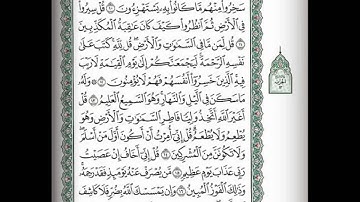 سَخِرُوا۟ مِنْهُم مَّا كَانُوا۟ بِهِۦ يَسْتَهْزِءُونَ ١٠ قُلْ سِيرُوا۟
فِى ٱلْأَرْضِ ثُمَّ ٱنظُرُوا۟ كَيْفَ كَانَ عَٰقِبَةُ ٱلْمُكَذِّبِينَ
١١ قُل لِّمَن مَّا فِى ٱلسَّمَٰوَٰتِ وَٱلْأَرْضِ قُل لِّلَّهِ كَتَبَ عَلَىٰ
نَفْسِهِ ٱلرَّحْمَةَ لَيَجْمَعَنَّكُمْ إِلَىٰ يَوْمِ ٱلْقِيَٰمَةِ لَا رَيْبَ
فِيهِ ٱلَّذِينَ خَسِرُوٓا۟ أَنفُسَهُمْ فَهُمْ لَا يُؤْمِنُونَ ١٢ وَلَهُۥ
مَا سَكَنَ فِى ٱلَّيْلِ وَٱلنَّهَارِ وَهُوَ ٱلسَّمِيعُ ٱلْعَلِيمُ ١٣ قُلْ
أَغَيْرَ ٱللَّهِ أَتَّخِذُ وَلِيًّا فَاطِرِ ٱلسَّمَٰوَٰتِ وَٱلْأَرْضِ وَهُوَ
يُطْعِمُ وَلَا يُطْعَمُ قُلْ إِنِّىٓ أُمِرْتُ أَنْ أَكُونَ أَوَّلَ مَنْ أَسْلَمَ
وَلَا تَكُونَنَّ مِنَ ٱلْمُشْرِكِينَ ١٤ قُلْ إِنِّىٓ أَخَافُ إِنْ عَصَيْتُ
رَبِّى عَذَابَ يَوْمٍ عَظِيمٍ ١٥ مَّن يُصْرَفْ عَنْهُ يَوْمَئِذٍ فَقَدْ رَحِمَهُۥ
وَذَٰلِكَ ٱلْفَوْزُ ٱلْمُبِينُ ١٦ وَإِن يَمْسَسْكَ ٱللَّهُ بِضُرٍّ فَلَا كَاشِفَ